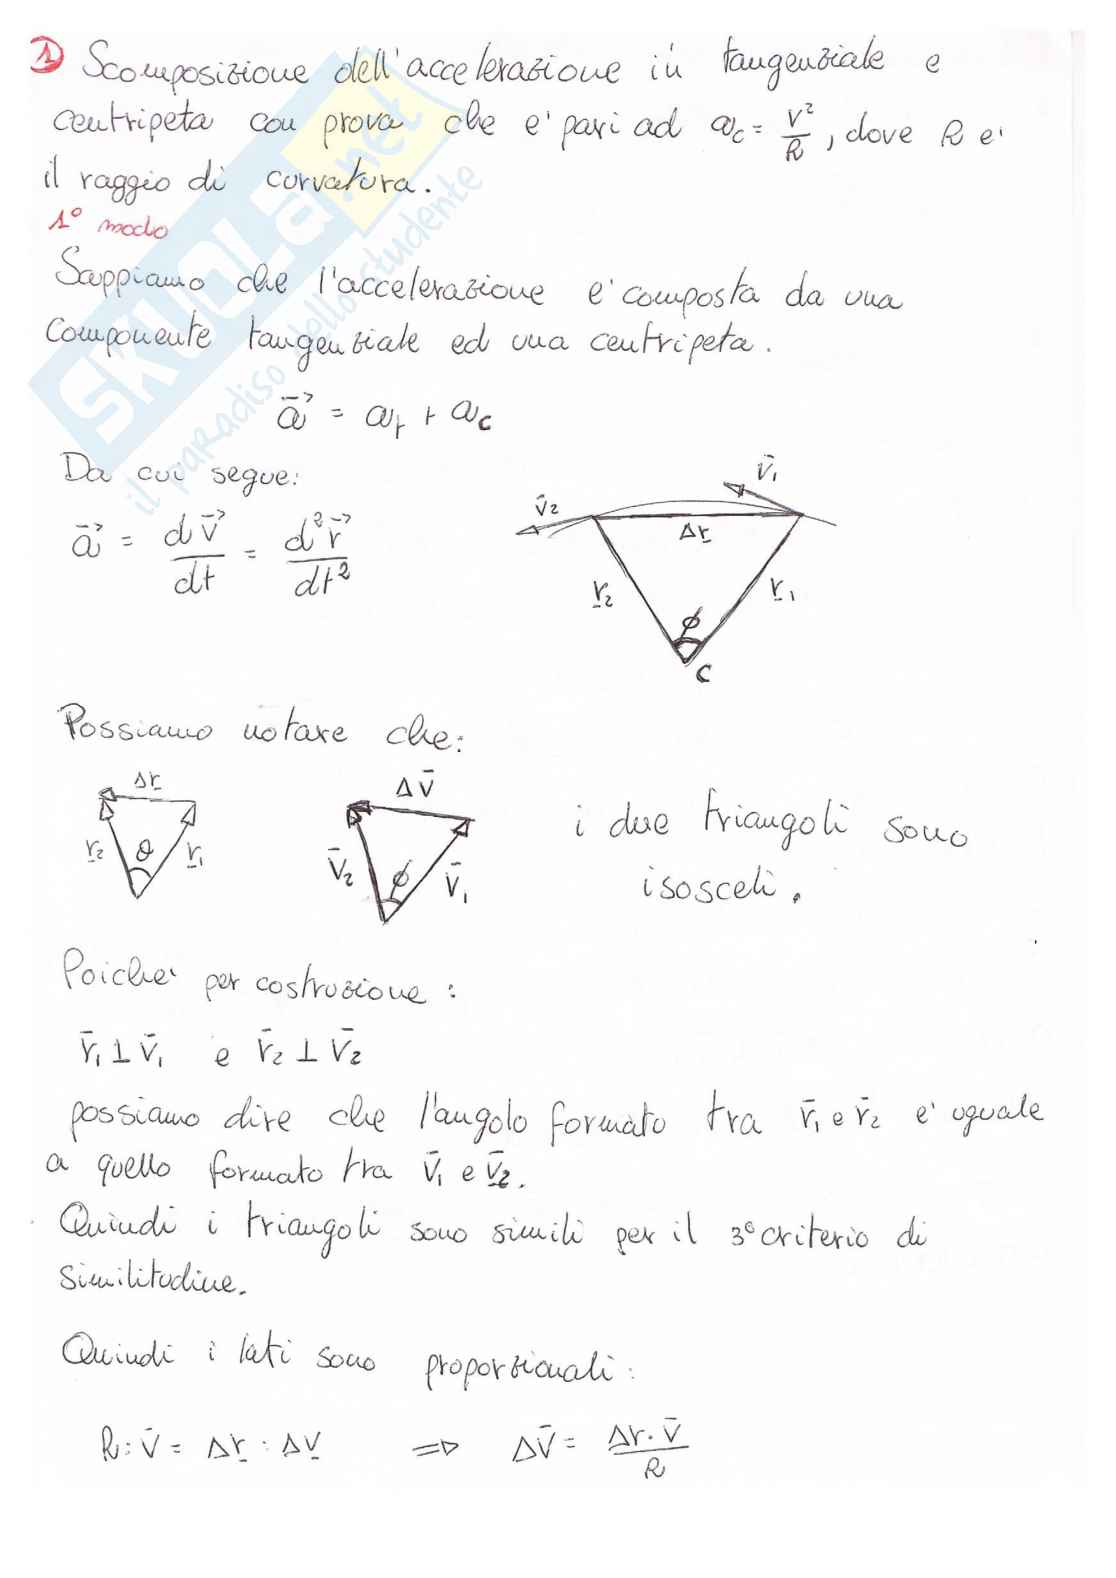 1) Scomposizione dell'accelerazione in tangenziale e
centripeta con prova che e' pari ad ac = V²/R, dove R e'
il raggio di curvatura.
1° modo
Sappiamo che l'accelerazione e' composta da una
componente tangenziale ed una centripeta.
a⃗ = at + ac
Da cui segue:
a⃗ = dv⃗/dt = d²r⃗/dt²
V̄1
V̄2
Δr
r2
r1
ϕ
C
Possiamo notare che:
Δr
r2
θ
r1
ΔV̄
V̄2
ϕ
V̄1
i due triangoli sono
isosceli.
Poiche' per costruzione:
r̄1 ⊥ V̄1 e r̄2 ⊥ V̄2
possiamo dire che l'angolo formato tra r̄1 e r̄2 e' uguale
a quello formato tra V̄1 e V̄2.
Quindi i triangoli sono simili per il 3° criterio di
similitudine.
Quindi i lati sono proporzionali:
R : V̄ = Δr : ΔV ⇒ ΔV̄ = Δr · V̄ / R
SKUOLA.net
il paradiso dello studente